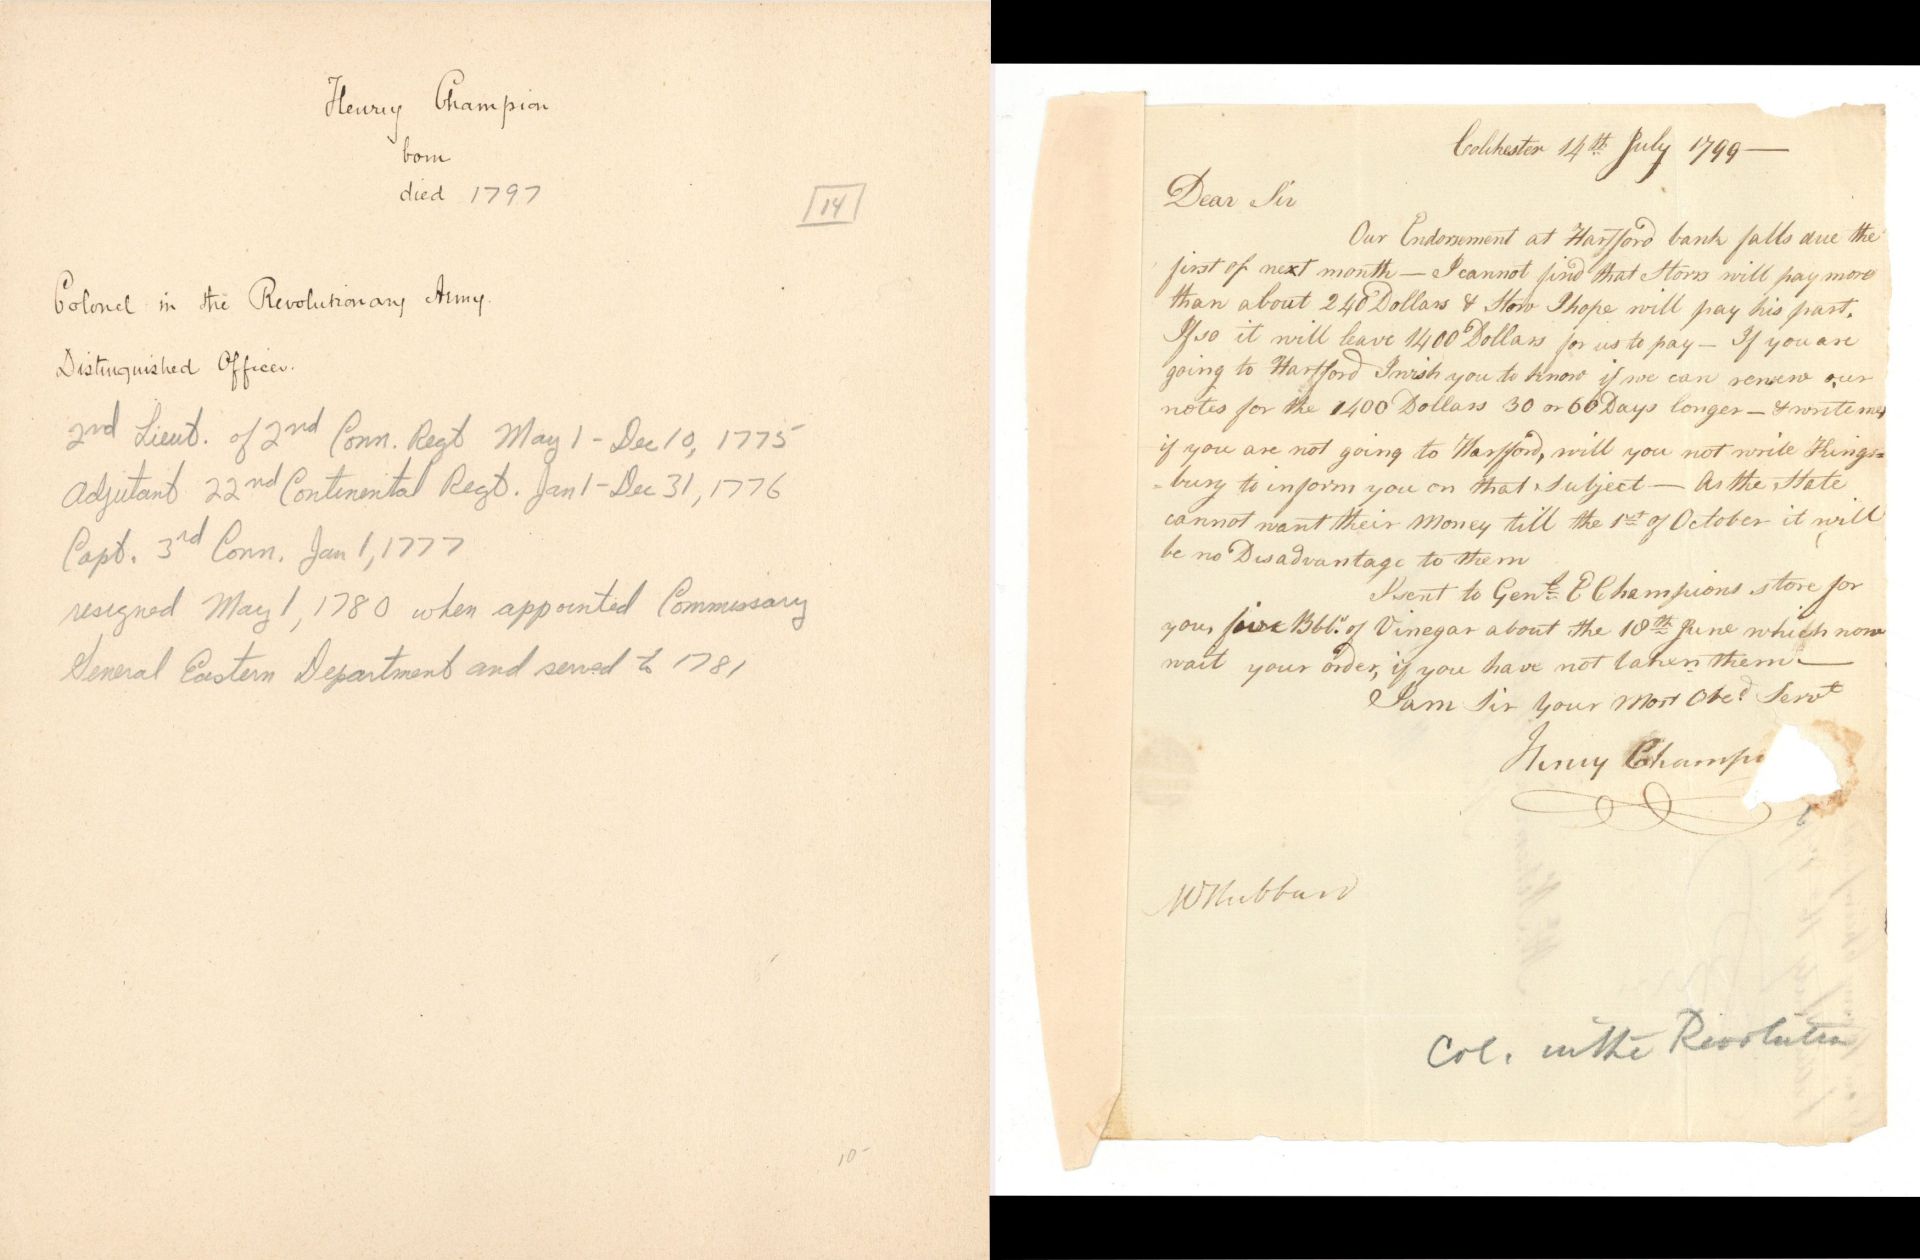 Henry Champion
born
died 1797
14
Colonel in the Revolutionary Army.
Distinguished Officer.
2nd Lieut. of 2nd Conn. Regt May 1 - Dec 10, 1775
Adjutant 22nd Continental Regt. Jan 1 - Dec 31, 1776
Capt. 3rd Conn. Jan 1, 1777
resigned May 1, 1780 when appointed Commissary
General Eastern Department and served to 1781
10-
Colchester 14th July 1799 —
Dear Sir
Our Endorsement at Hartford bank falls due the
first of next month — I cannot find that Storrs will pay more
than about 240 Dollars & Stow I hope will pay his part.
If so it will leave 1400 Dollars for us to pay — If you are
going to Hartford I wish you to know if we can renew our
notes for the 1400 Dollars 30 or 60 Days longer — & write me,
if you are not going to Hartford, will you not write Kings=
=bury to inform you on that Subject — As the State
cannot want their Money till the 1st of October it will
be no Disadvantage to them
I sent to Genl. E Champions store for
you, five Bbls. of Vinegar about the 18th June which now
wait your order, if you have not taken them. —
I am Sir Your Most Obed Servt
Henry Champi
W Hubbard
Col. in the Revolution